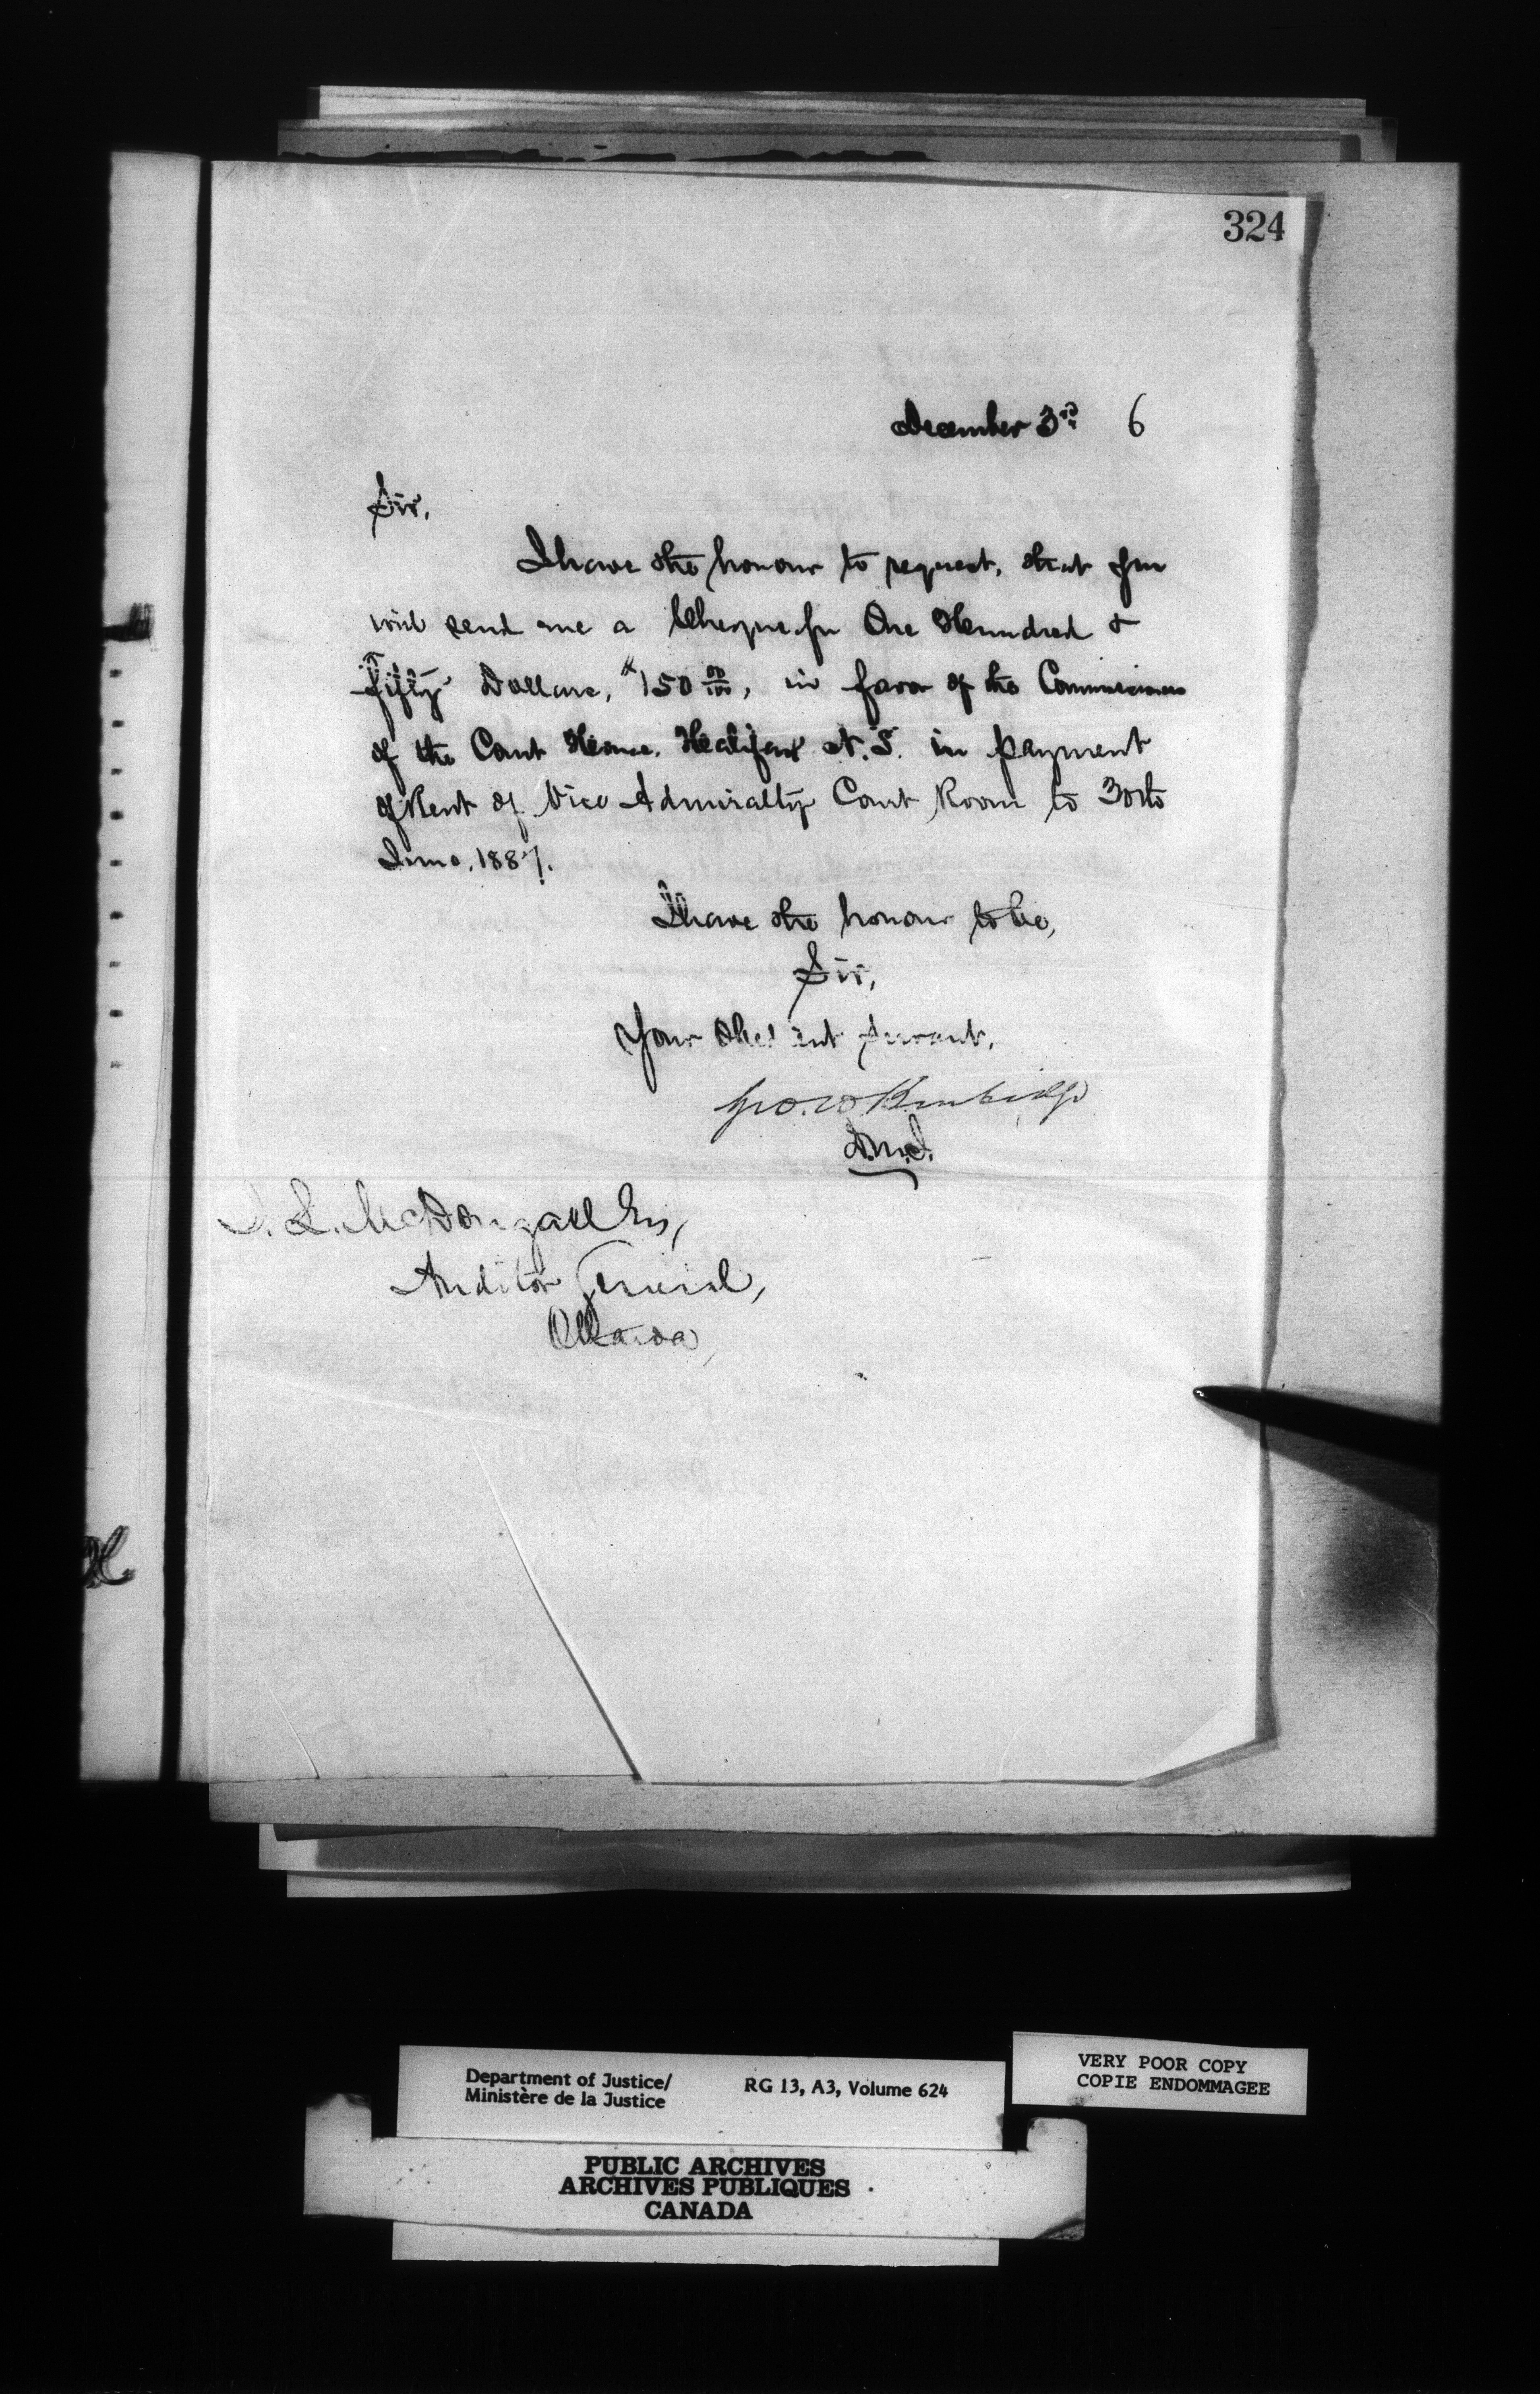 324
December 3rd 6
Sir,
I have the honour to request, that you
will send me a Cheque for One Hundred &
Fifty Dollars, $150 00/100, in favor of the Commissioners
of the Court House, Halifax N.S. in payment
of Rent of Vice Admiralty Court Room to 30th
June, 1887.
I have the honour to be,
Sir,
Your Obedient Servant,
Geo. W Burbidge
D.M.J.
J. L. McDougall Esq,
Auditor General,
Ottawa,
Department of Justice/
Ministère de la Justice
RG 13, A3, Volume 624
VERY POOR COPY
COPIE ENDOMMAGEE
PUBLIC ARCHIVES
ARCHIVES PUBLIQUES
CANADA